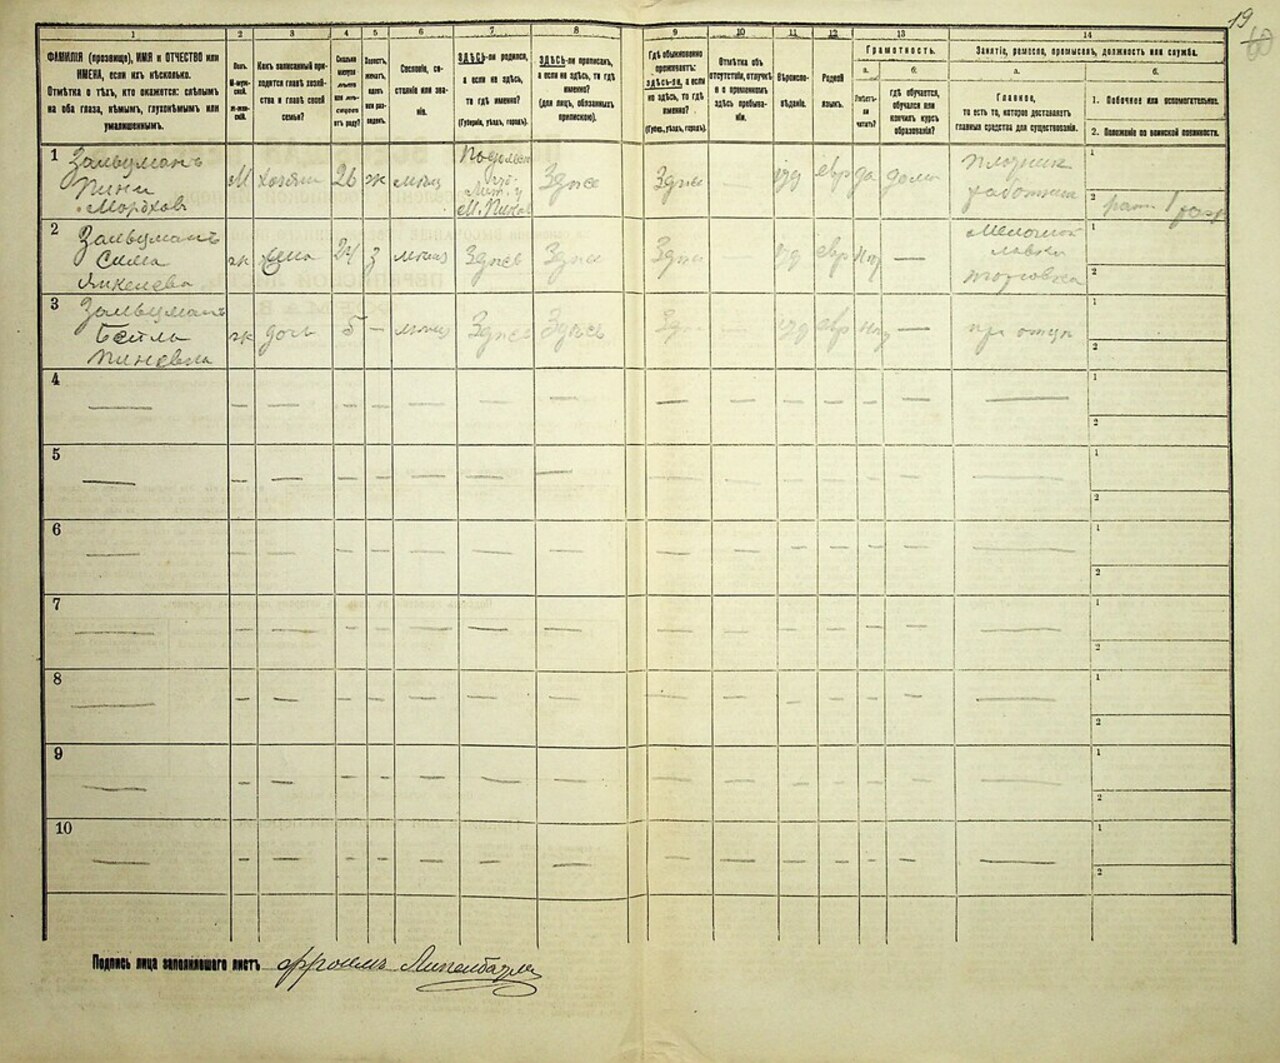 19
60
1
2
3
4
5
6
7
8
9
10
11
12
13
14
ФАМИЛІЯ (прозвище), ИМЯ и ОТЧЕСТВО или
ИМЕНА, если ихъ нѣсколько.
Отмѣтка о тѣхъ, кто окажется: слѣпымъ
на оба глаза, нѣмымъ, глухонѣмымъ или
умалишеннымъ.
Полъ.
Какъ записанный при-
ходится главѣ хозяй-
ства и главѣ своей
семьи?
Сословіе, со-
стояніе или зва-
ніе.
ЗДѢСЬ-ли родился,
а если не здѣсь,
то гдѣ именно?
(Губернія, уѣздъ, городъ).
ЗДѢСЬ-ли приписанъ,
а если не здѣсь, то гдѣ
именно?
(для лицъ, обязанныхъ
припискою).
Гдѣ обыкновенно
проживаетъ:
здѣсь-ли, а если
не здѣсь, то гдѣ
именно?
(Губерн., уѣздъ, городъ).
Отмѣтка объ
отсутствіи, отлучкѣ
и о временномъ
здѣсь пребыва-
ніи.
Вѣроиспо-
вѣданіе.
Родной
языкъ.
Грамотность.
а.
б.
Умѣетъ-
ли
читать?
гдѣ обучается,
обучался или
кончилъ курсъ
образованія?
Занятіе, ремесло, промыселъ, должность или служба.
а.
б.
Главное,
то есть то, которое доставляетъ
главныя средства для существованія.
1. Побочное или вспомогательное.
2. Положеніе по воинской повинности.
1 Зальцманъ
Пини
Мордхов
М
хозяин
26
ж
Здѣсь
Здѣсь
—
іуд
евр
да
дома
1
2
2 Зальцманъ
Сима
Янкелева
ж
жена
24
з
Здѣсь
Здѣсь
Здѣсь
—
іуд
евр
—
лавки
торговка
1
2
3 Зальцманъ
Бейла
Пиневна
ж
дочь
5
—
Здѣсь
Здѣсь
Здѣсь
—
іуд
евр
—
при отцѣ
1
2
4
1
2
5
1
2
6
1
2
7
1
2
8
1
2
9
1
2
10
1
2
Подпись лица заполнявшаго листъ Фроимъ